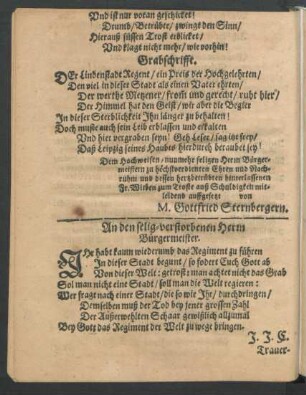 Und ist nur voran geschicket!
Drumb/ Betrübte/ zwingt den Sinn/
Hierauß süssen Trost erblicket/
Und klagt nicht mehr/ wie vorhin!
Grabschrifft.
DEr Lindenstadt Regent/ ein Preiß der Hochgelehrten/
Den viel in dieser Stadt als einen Vater ehrten/
Der werthe Meyener/ from und gerecht/ ruht hier/
Der Himmel hat den Geist/ wir aber die Begier
In dieser Sterblickeit Ihn länger zu behalten!
Doch muste auch sein Leib erblassen und erkalten
Und hier vergraben seyn! Geh Leser/ sag itzt frey/
Daß Leipzig seines Haubts hierdurch beraubet sey!
Dem Hochweisen/ nunmehr seligen Herrn Bürger-
meistern zu höchstverdienten Ehren und Nach-
ruhm und dessen hertzbetrübten hinterlassenen
Fr. Witben zum Troste auß Schuldigkeit mit-
leidend auffgesetzt von
M. Gottfried Sternbergern.
An den selig-verstorbenen Herrn
Bürgermeister.
IHr habt kaum wiedrumb das Regiment zu führen
In dieser Stadt begunt/ so fodert Euch Gott ab
Von dieser Welt: getrost: man achtet nicht das Grab
Sol man nicht eine Stadt/ soll man die Welt regieren:
Wer fragt nach einer Stadt/ die so wie Ihr/ durchdringen/
Demselben muß der Tod bey jener grossen Zahl
Der Außerwehlten Schaar gewißlich allzumal
Bey Gott das Regiment der Welt zu wege bringen.
J. J. E.
Trauer-